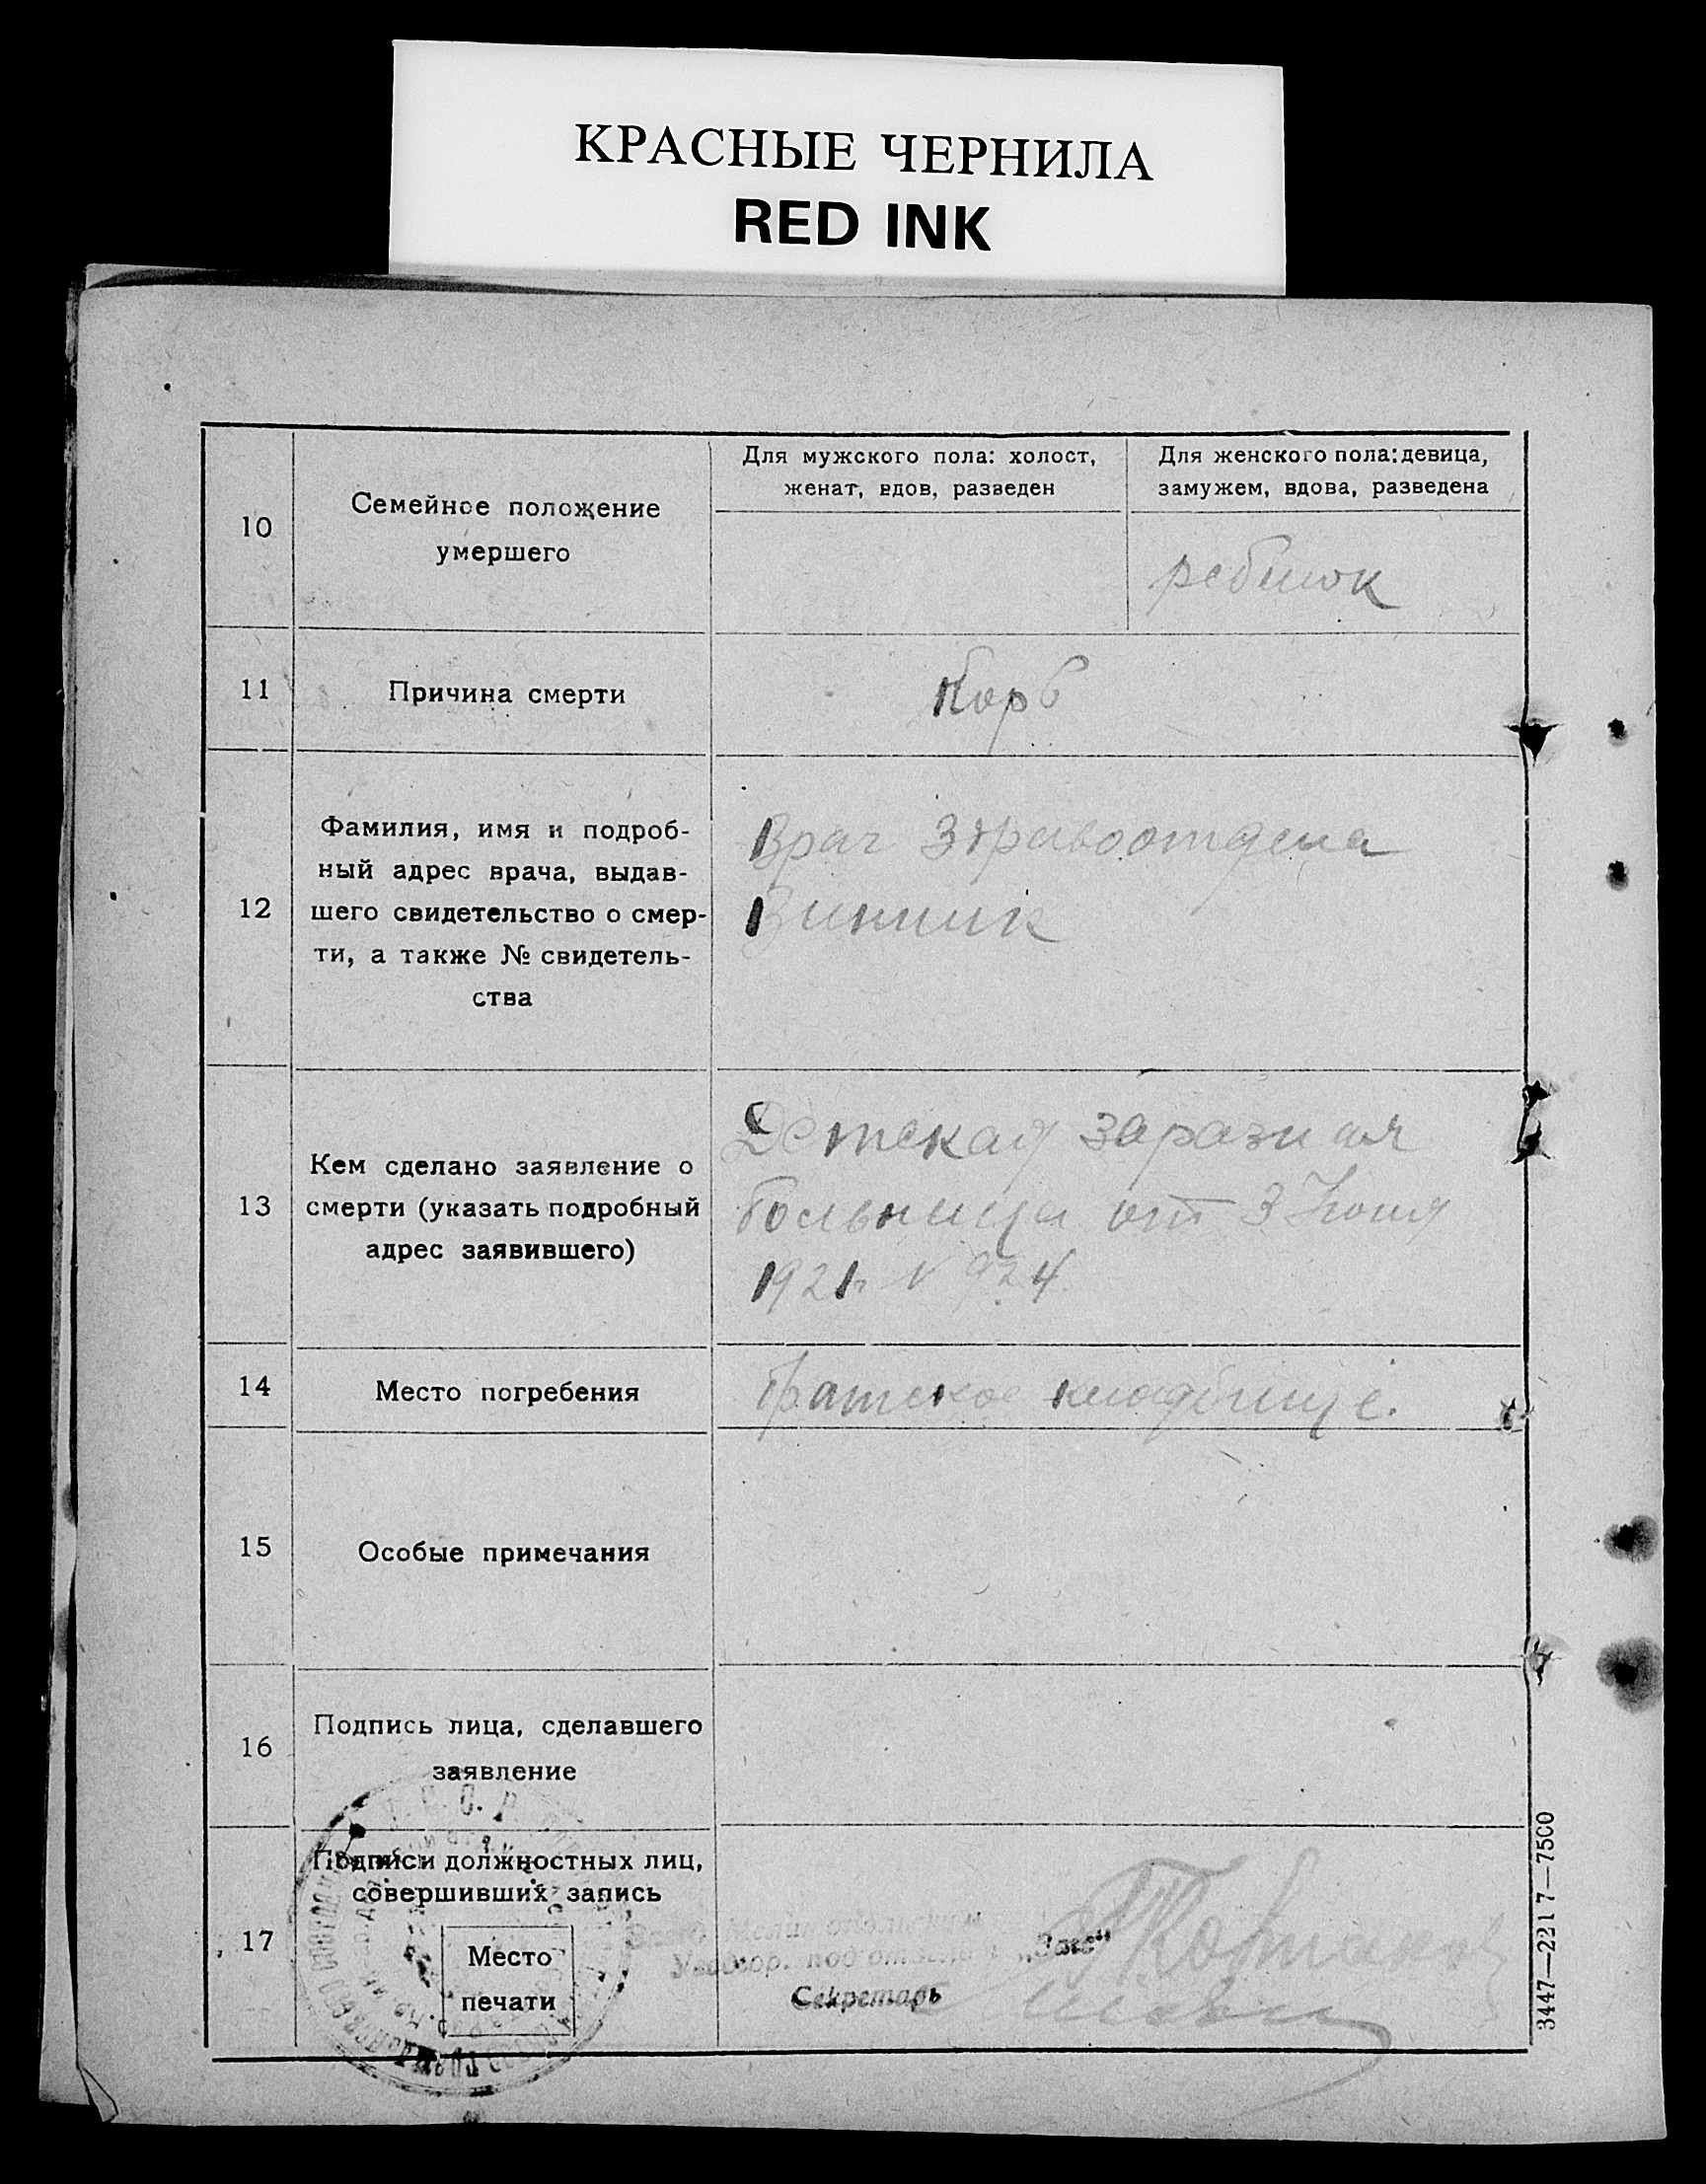 КРАСНЫЕ ЧЕРНИЛА
RED INK
10
Семейное положение
умершего
Для мужского пола: холост,
женат, вдов, разведен
Для женского пола: девица,
замужем, вдова, разведена
ребенок
11
Причина смерти
Корь
12
Фамилия, имя и подроб-
ный адрес врача, выдав-
шего свидетельство о смер-
ти, а также № свидетель-
ства
Врач Здравоотдела
Винник
13
Кем сделано заявление о
смерти (указать подробный
адрес заявившего)
Детская заразная
больница от 3 Июня
1921г N 924
14
Место погребения
Братское кладбище.
15
Особые примечания
16
Подпись лица, сделавшего
заявление
17
Подписи должностных лиц,
совершивших запись
Место
печати
под отделом „Загс"
Секретарь
3447—221 7—7500